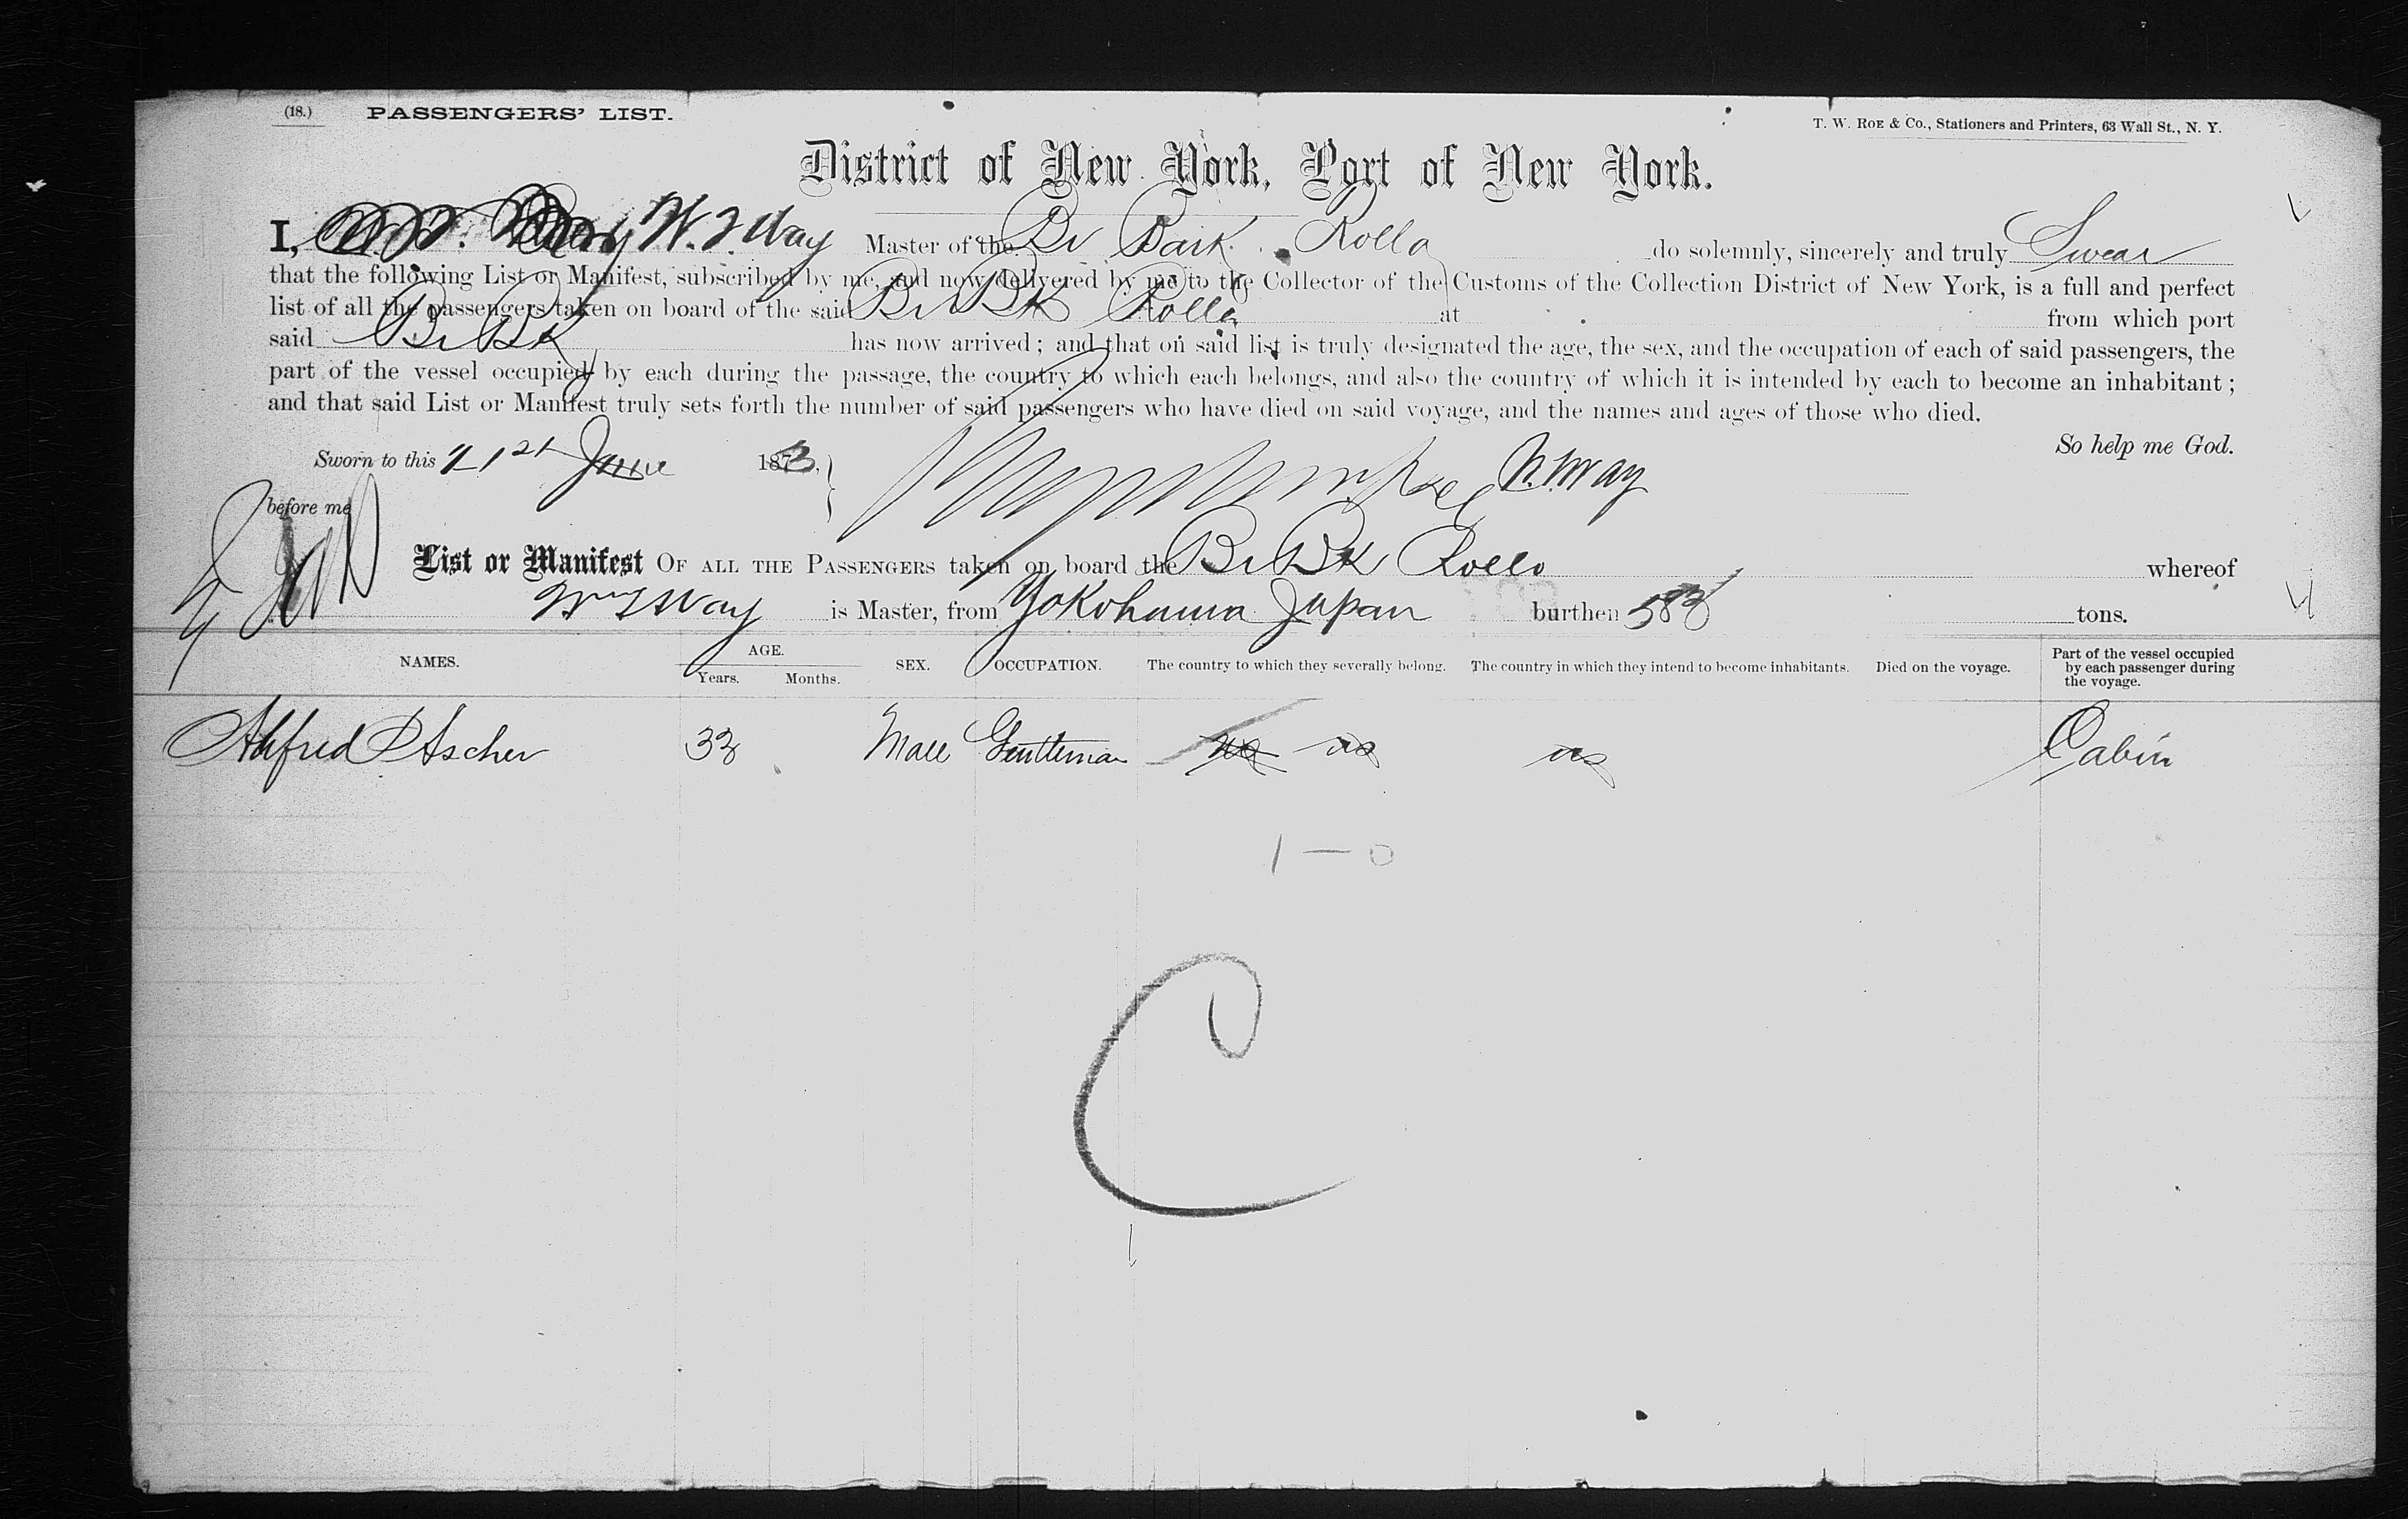 (18.) PASSENGERS' LIST.
T. W. ROE & CO., Stationers and Printers, 63 Wall St., N. Y.
District of New York, Port of New York.
I, W. T. Way Master of the Br Bark Rollo do solemnly, sincerely and truly Swear
that the following List or Manifest, subscribed by me, and now delivered by me to the Collector of the Customs of the Collection District of New York, is a full and perfect
list of all the passengers taken on board of the said Br Bk Rollo at from which port
said Br Bk has now arrived; and that on said list is truly designated the age, the sex, and the occupation of each of said passengers, the
part of the vessel occupied by each during the passage, the country to which each belongs, and also the country of which it is intended by each to become an inhabitant;
and that said List or Manifest truly sets forth the number of said passengers who have died on said voyage, and the names and ages of those who died.
So help me God.
Sworn to this 21st June 1873. Way
before me
List or Manifest OF ALL THE PASSENGERS taken on board the Br Bk Rollo whereof
Wm T Way is Master, from Yokohama Japan burthen tons.
NAMES. AGE. Years. Months. SEX. OCCUPATION. The country to which they severally belong. The country in which they intend to become inhabitants. Died on the voyage. Part of the vessel occupied by each passenger during the voyage.
Alfred D Ascher 33 Male Gentleman us us Cabin
1 — 0
C